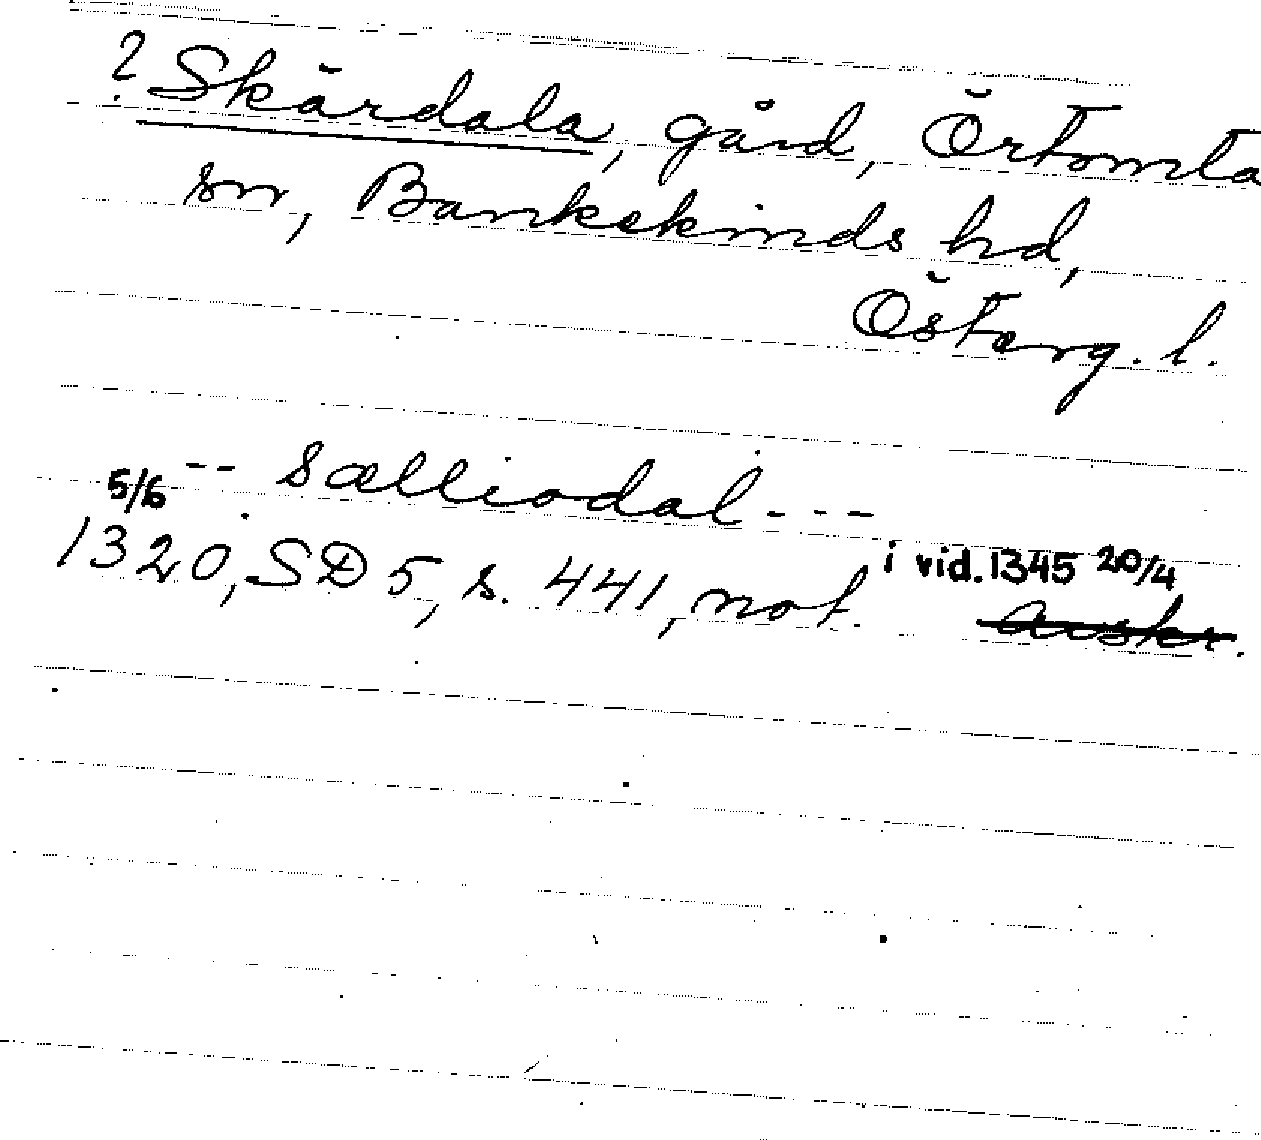 ? Skärdala, gård, Örtomta
sn, Bankekinds hd,
Österg. l.
-- sælliodal ---
5/6 1320, SD 5, s. 441, not. i vid. 1345 20/4 avskr.